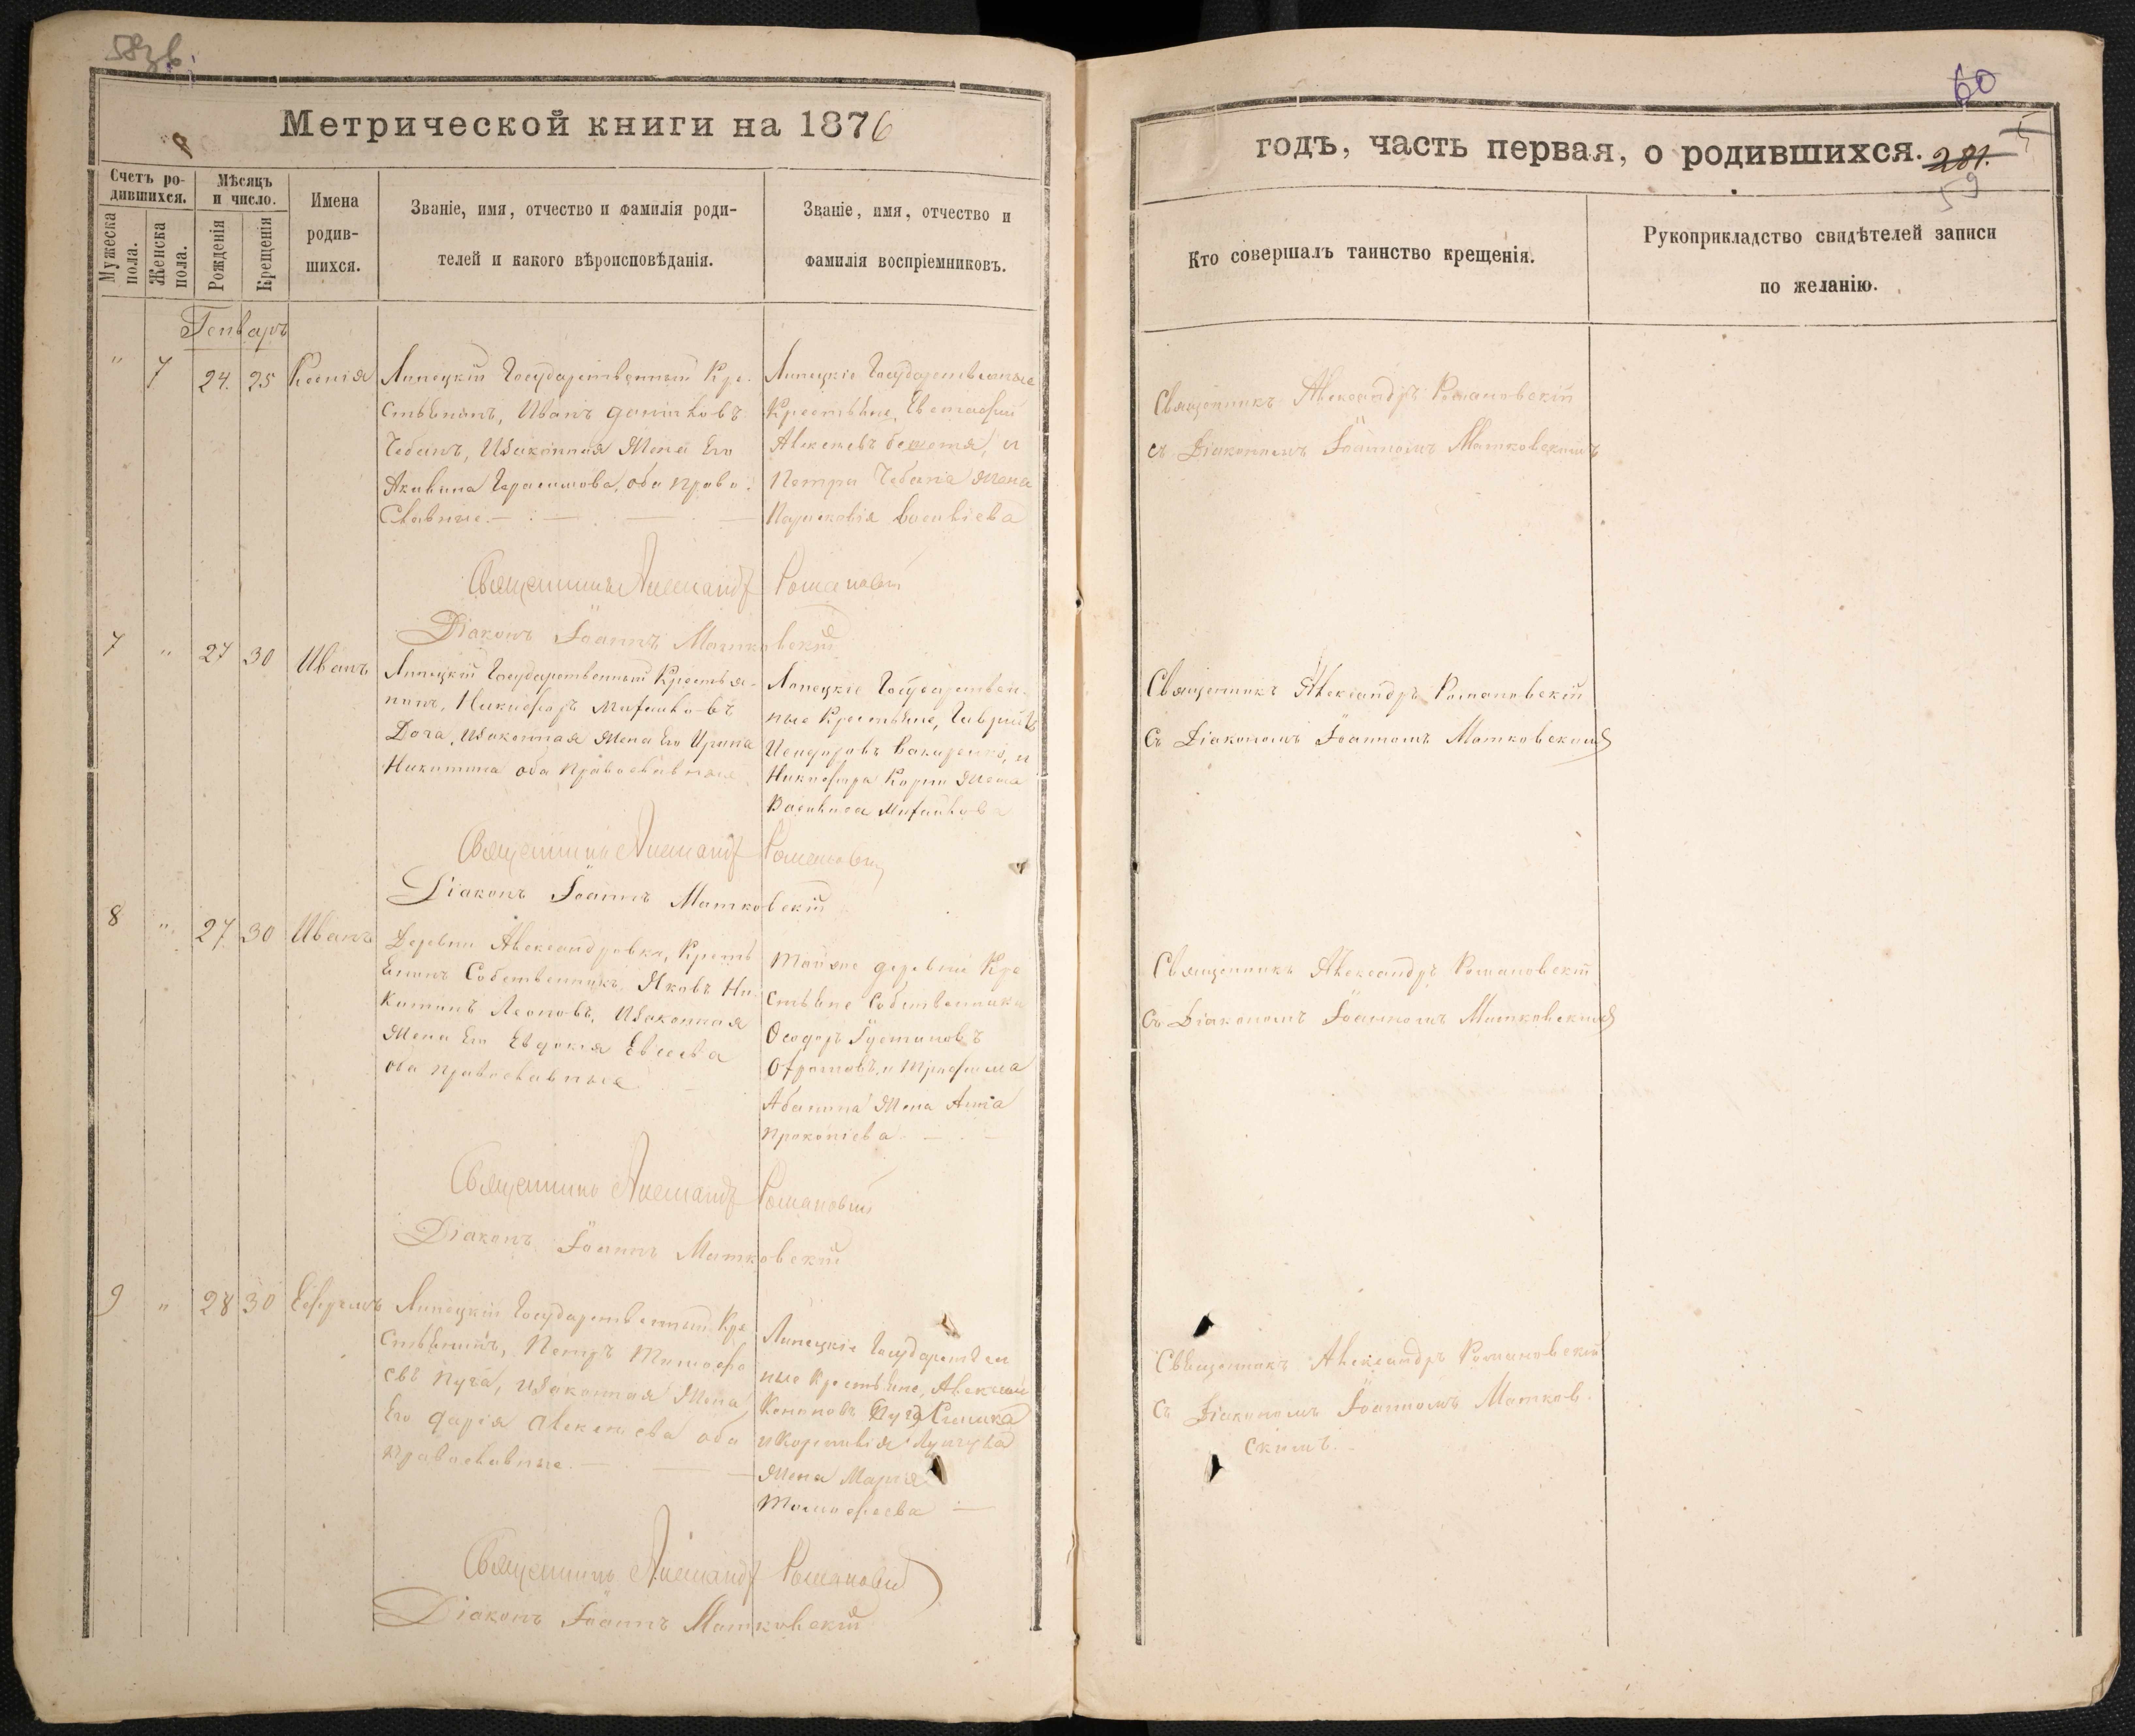 58 зв.
Метрической книги на 1876
Счетъ ро-
дившихся.
Мужеска
пола.
Женска
пола.
Мѣсяцъ
и число.
Рожденія
Крещенія
Имена
родив-
шихся.
Званіе, имя, отчество и фамилія роди-
телей и какого вѣроисповѣданія.
Званіе, имя, отчество и
фамилія воспріемниковъ.
Генварь
" 7 24. 25 Ксенія
Липецкій Государственный Кре-
стьянинъ, Иванъ
Чебанъ, Изаконная Жена Его
Акилина Герасимова, оба право-
славные.
Липецкіе Государственные
Крестьяне, Евстафій
Алексеевъ и
Петра Чебана Жена
Парасковія Василіева
Священникъ Александръ Романовскій
Діаконъ Іоаннъ Матковскій
7 " 27 30 Иванъ
Липецкій Государственный Крестья-
нинъ, Никифоръ Михайловъ
Дога, Изаконная Жена Его Ирина
Никитина оба Православные
Липецкіе Государствен-
ные Крестьяне, Гавріилъ
и
Никифора Корни Жена
Василиса Михайлова
Священникъ Александръ Романовскій
Діаконъ Іоаннъ Матковскій
8 " 27 30 Иванъ
Деревни Александровки, Кресть
янинъ Собственникъ, Яковъ Ни-
китинъ Леоновъ, Изаконная
Жена Его Евдокія Евсеева
оба православные
Тойже деревни Кре
стьяне Собственники
Феодоръ
и Трофима
Жена Анна
Прокопіева
Священникъ Александръ Романовскій
Діаконъ Іоаннъ Матковскій
9 " 28 30 Ефремъ
Липецкій Государственный Кре
стьянинъ, Петръ Тимофе
евъ Пуга, Изаконная Жена
Его Дарія Алексеева оба
православные.
Липецкіе Государствен
ные Крестьяне, Алексей
Кононовъ Пуга
и
Жена Марія
Тимофеева
Священникъ Александръ Романовскій
Діаконъ Іоаннъ Матковскій
60
годъ, часть первая, о родившихся.
281.
59
Кто совершалъ таинство крещенія.
Рукоприкладство свидѣтелей записи
по желанію.
Священникъ Александръ Романовскій
съ Діакономъ Іоанномъ Матковскимъ
Священникъ Александръ Романовскій
Съ Діакономъ Іоанномъ Матковскимъ
Священникъ Александръ Романовскій
Съ Діакономъ Іоанномъ Матковскимъ
Священникъ Александръ Романовскій
Съ Діакономъ Іоанномъ Матков-
скимъ.